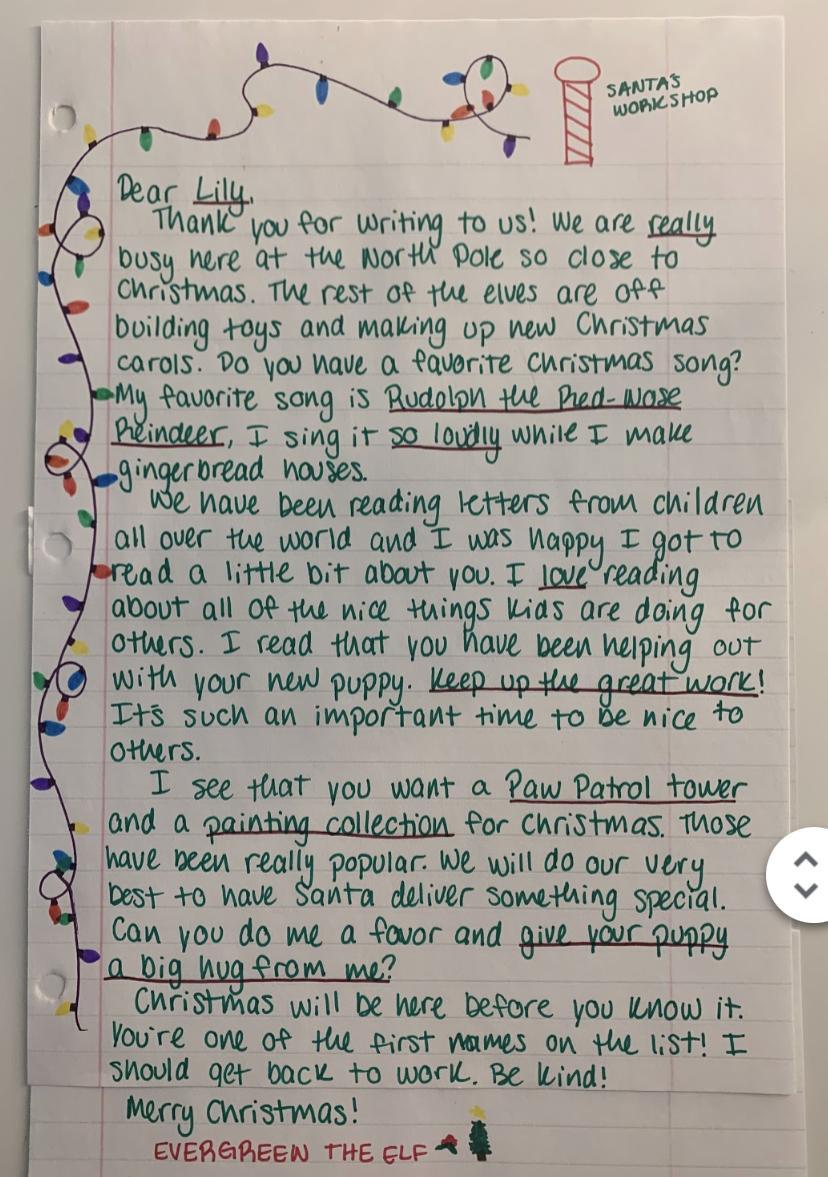 SANTA'S
WORKSHOP
Dear Lily,
Thank you for writing to us! We are really
busy here at the North Pole so close to
Christmas. The rest of the elves are off
building toys and making up new Christmas
carols. Do you have a favorite Christmas song?
My favorite song is Rudolph the Red-Nose
Reindeer, I sing it so loudly while I make
gingerbread houses.
We have been reading letters from children
all over the world and I was happy I got to
read a little bit about you. I love reading
about all of the nice things kids are doing for
others. I read that you have been helping out
with your new puppy. Keep up the great work!
It's such an important time to be nice to
others.
I see that you want a Paw Patrol tower
and a painting collection for Christmas. Those
have been really popular. We will do our very
best to have Santa deliver something special.
Can you do me a favor and give your puppy
a big hug from me?
Christmas will be here before you know it.
You're one of the first names on the list! I
should get back to work. Be kind!
Merry Christmas!
EVERGREEN THE ELF